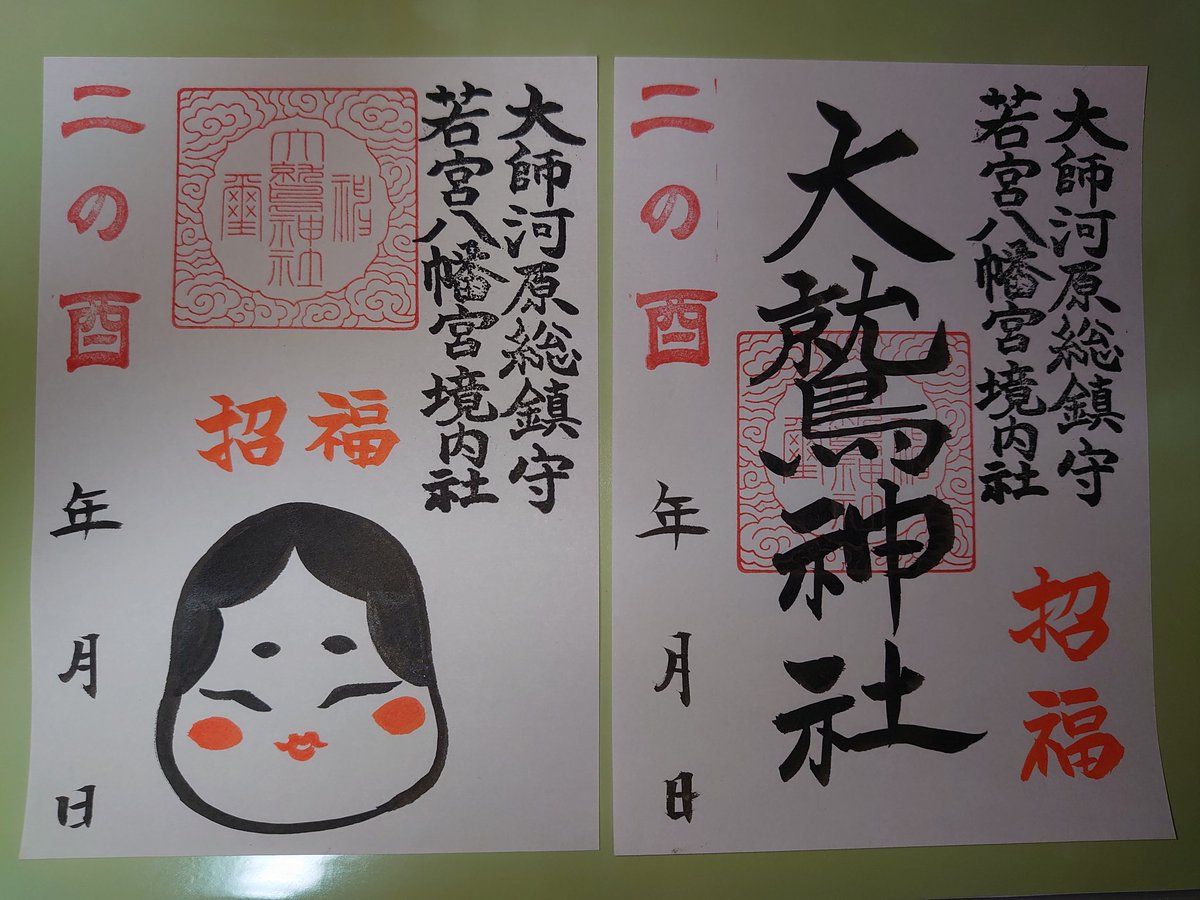 大師河原総鎮守
若宮八幡宮境内社
大鷲神社
神璽
招福
二の酉
年
月
日
大師河原総鎮守
若宮八幡宮境内社
招福
大鷲神社
二の酉
年
月
日